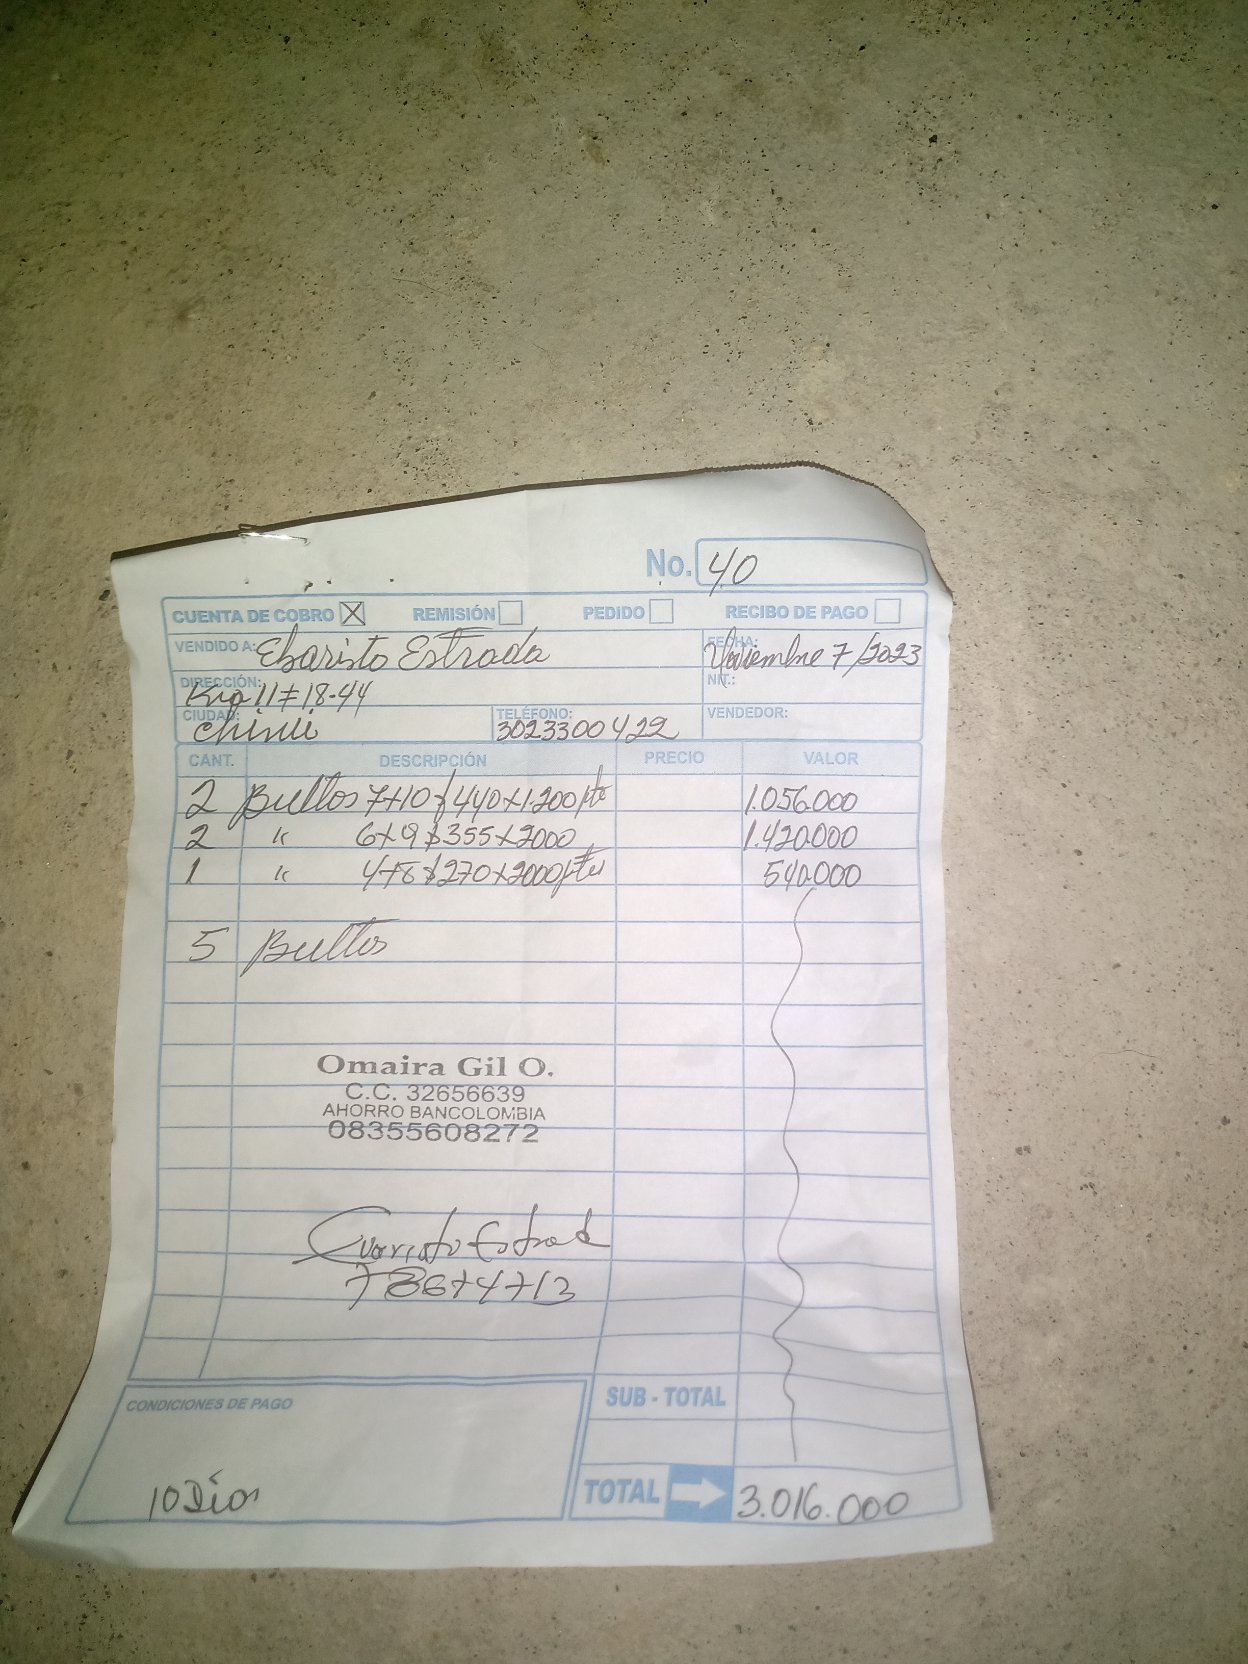 No. 40
CUENTA DE COBRO X REMISIÓN PEDIDO RECIBO DE PAGO
VENDIDO A: Ebaristo Estrada FECHA: Noviembre 7/2023
DIRECCIÓN: Kra 11 # 18-44 NIT.:
CIUDAD: Chinú TELÉFONO: 3023300422 VENDEDOR:
CANT. DESCRIPCIÓN PRECIO VALOR
2 Bultos 7x10 $440x1.200 pte 1.056.000
2 " 6x9 $355x2000 1.420.000
1 " 4x8 $270x2000 ptes 540.000
5 Bultos
Omaira Gil O.
C.C. 32656639
AHORRO BANCOLOMBIA
08355608272
Evaristo Estrada
78674713
SUB - TOTAL
CONDICIONES DE PAGO
10 Días
TOTAL 3.016.000